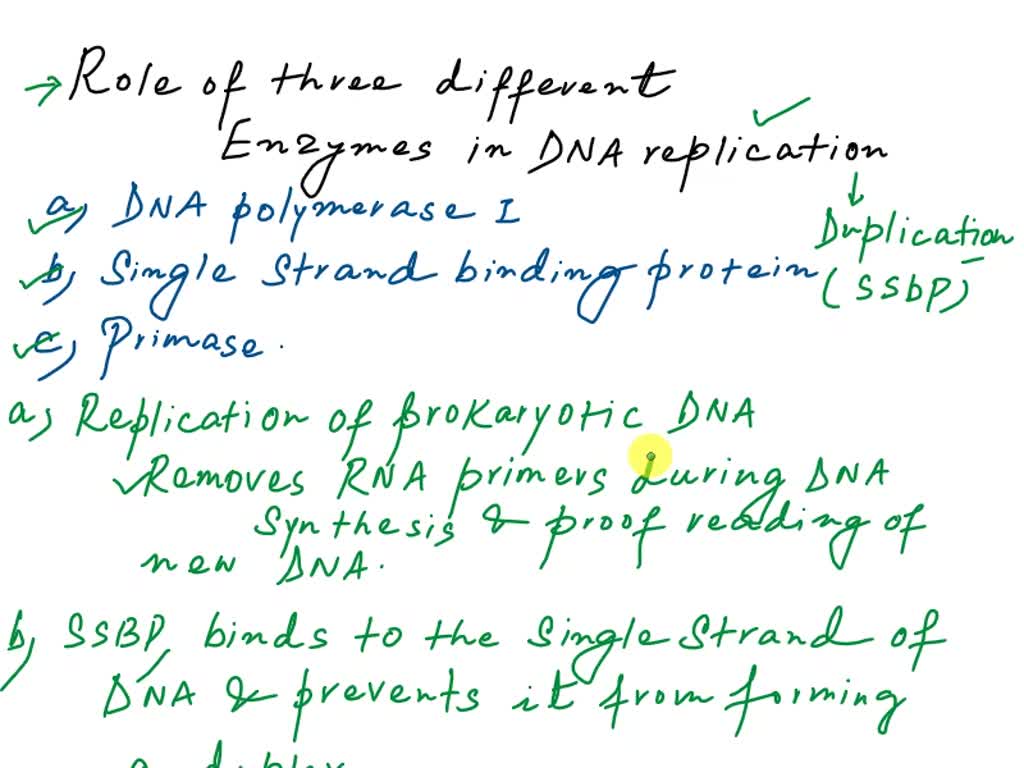 → Role of three different
Enzymes in DNA replication
a, DNA polymerase I
↓ Duplication
b, Single Strand binding protein (SSbP)
c, Primase.
a, Replication of prokaryotic DNA
✓Removes RNA primers during DNA
Synthesis & proof reading of
new DNA.
b, SSBP, binds to the Single Strand of
DNA & prevents it from forming
a duplex